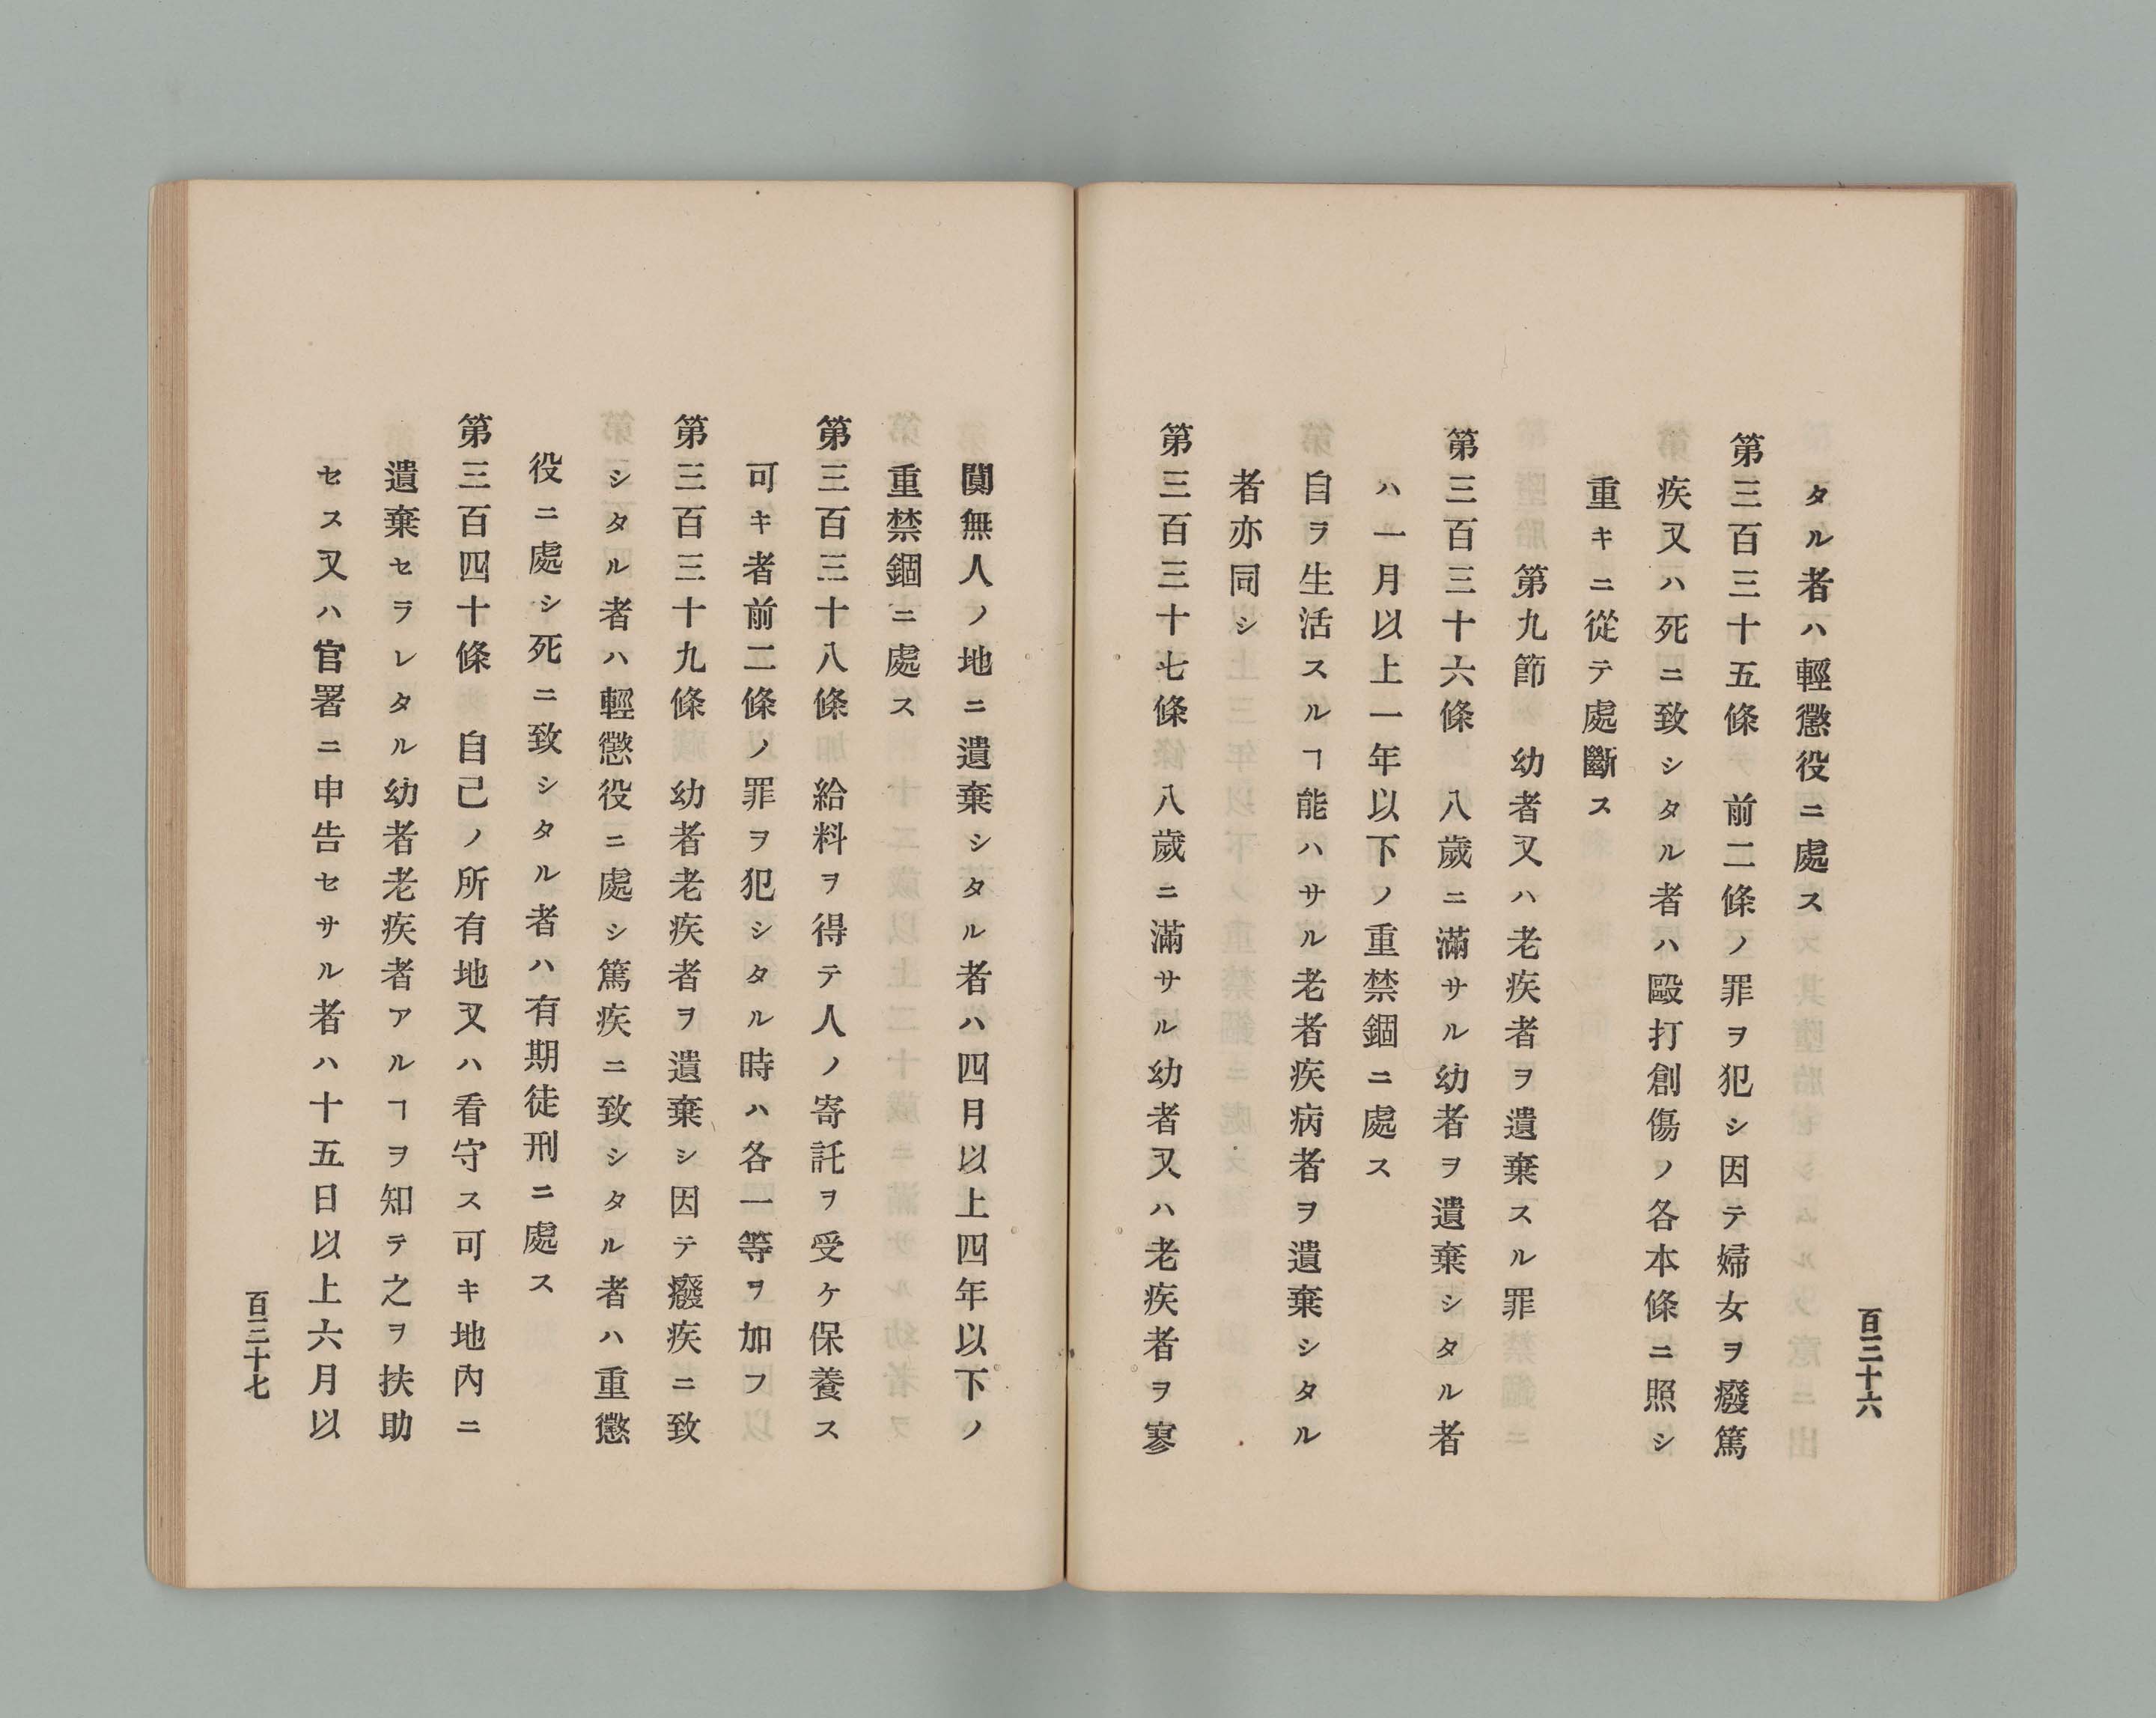 百三十六
タル者ハ輕懲役ニ處ス
第三百三十五條 前二條ノ罪ヲ犯シ因テ婦女ヲ癈篤
疾又ハ死ニ致シタル者ハ毆打創傷ノ各本條ニ照シ
重キニ從テ處斷ス
第九節 幼者又ハ老疾者ヲ遺棄スル罪
第三百三十六條 八歲ニ滿サル幼者ヲ遺棄シタル者
ハ一月以上一年以下ノ重禁錮ニ處ス
自ヲ生活スルヿ能ハサル老者疾病者ヲ遺棄シタル
者亦同シ
第三百三十七條 八歲ニ滿サル幼者又ハ老疾者ヲ寥
闃無人ノ地ニ遺棄シタル者ハ四月以上四年以下ノ
重禁錮ニ處ス
第三百三十八條 給料ヲ得テ人ノ寄託ヲ受ケ保養ス
可キ者前二條ノ罪ヲ犯シタル時ハ各一等ヲ加フ
第三百三十九條 幼者老疾者ヲ遺棄シ因テ癈疾ニ致
シタル者ハ輕懲役ニ處シ篤疾ニ致シタル者ハ重懲
役ニ處シ死ニ致シタル者ハ有期徒刑ニ處ス
第三百四十條 自己ノ所有地又ハ看守ス可キ地內ニ
遺棄セヲレタル幼者老疾者アルヿヲ知テ之ヲ扶助
セス又ハ官署ニ申告セサル者ハ十五日以上六月以
百三十七